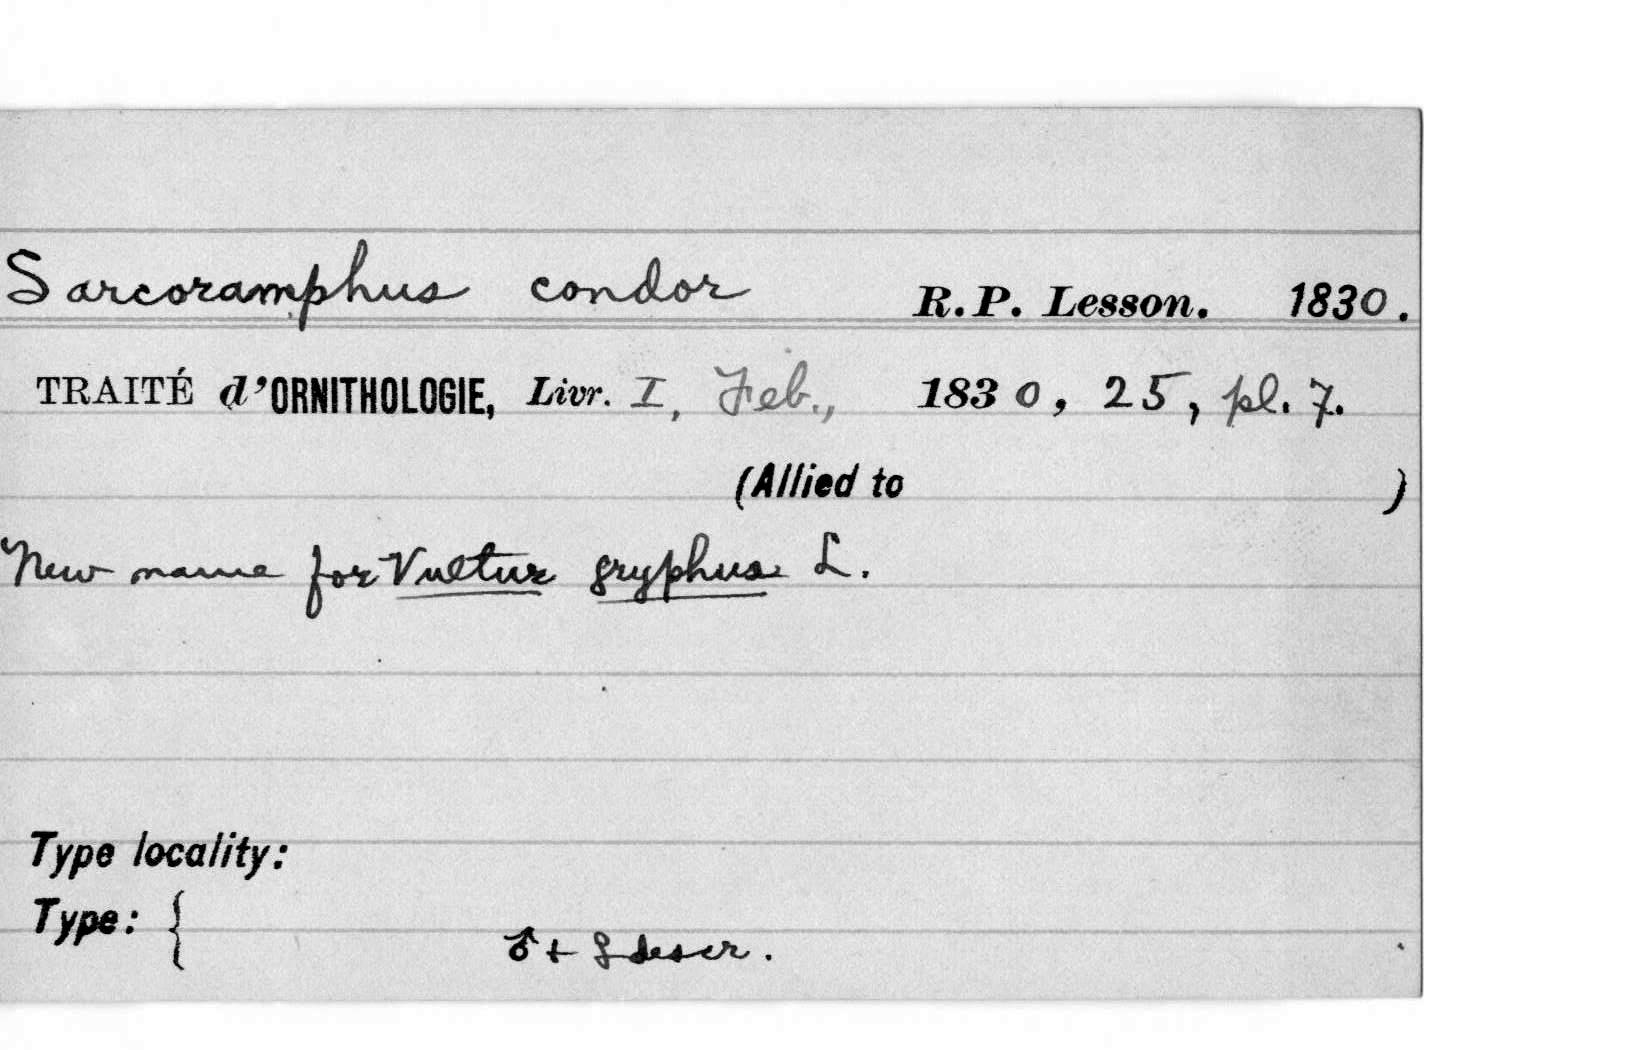 Sarcoramphus condor R.P. Lesson. 1830.
TRAITÉ d'ORNITHOLOGIE, Livr. I, Feb., 1830, 25, pl. 7.
(Allied to )
New name for Vultur gryphus L.
Type locality:
Type: {
♂ + ♀ descr.